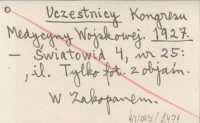 Uczestnicy Kongresu
Medycyny Wojskowej. 1927.
– Światowid 4, nr 25:
, il. Tylko fot. z objaśn.
W Zakopanem.